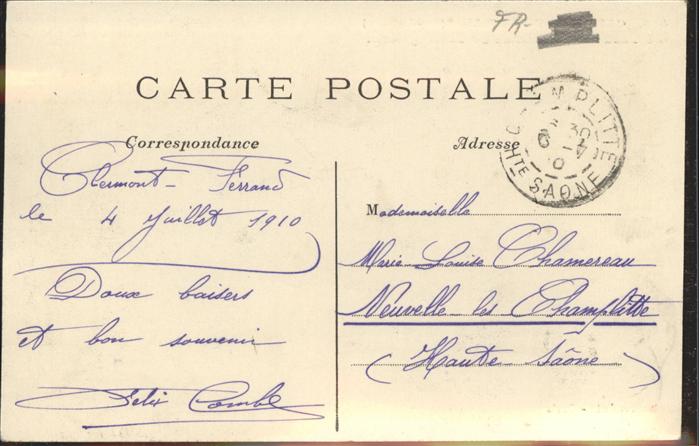 FR-
CARTE POSTALE
Correspondance
Adresse
CHAMPLITTE
HTE SAONE
Clermont-Ferrand
le 4 Juillet 1910
Doux baisers
et bon souvenir
Felix Combe
Mademoiselle
Marie Louise Chamereau
Neuvelle les Champlitte
(Haute-Saône)